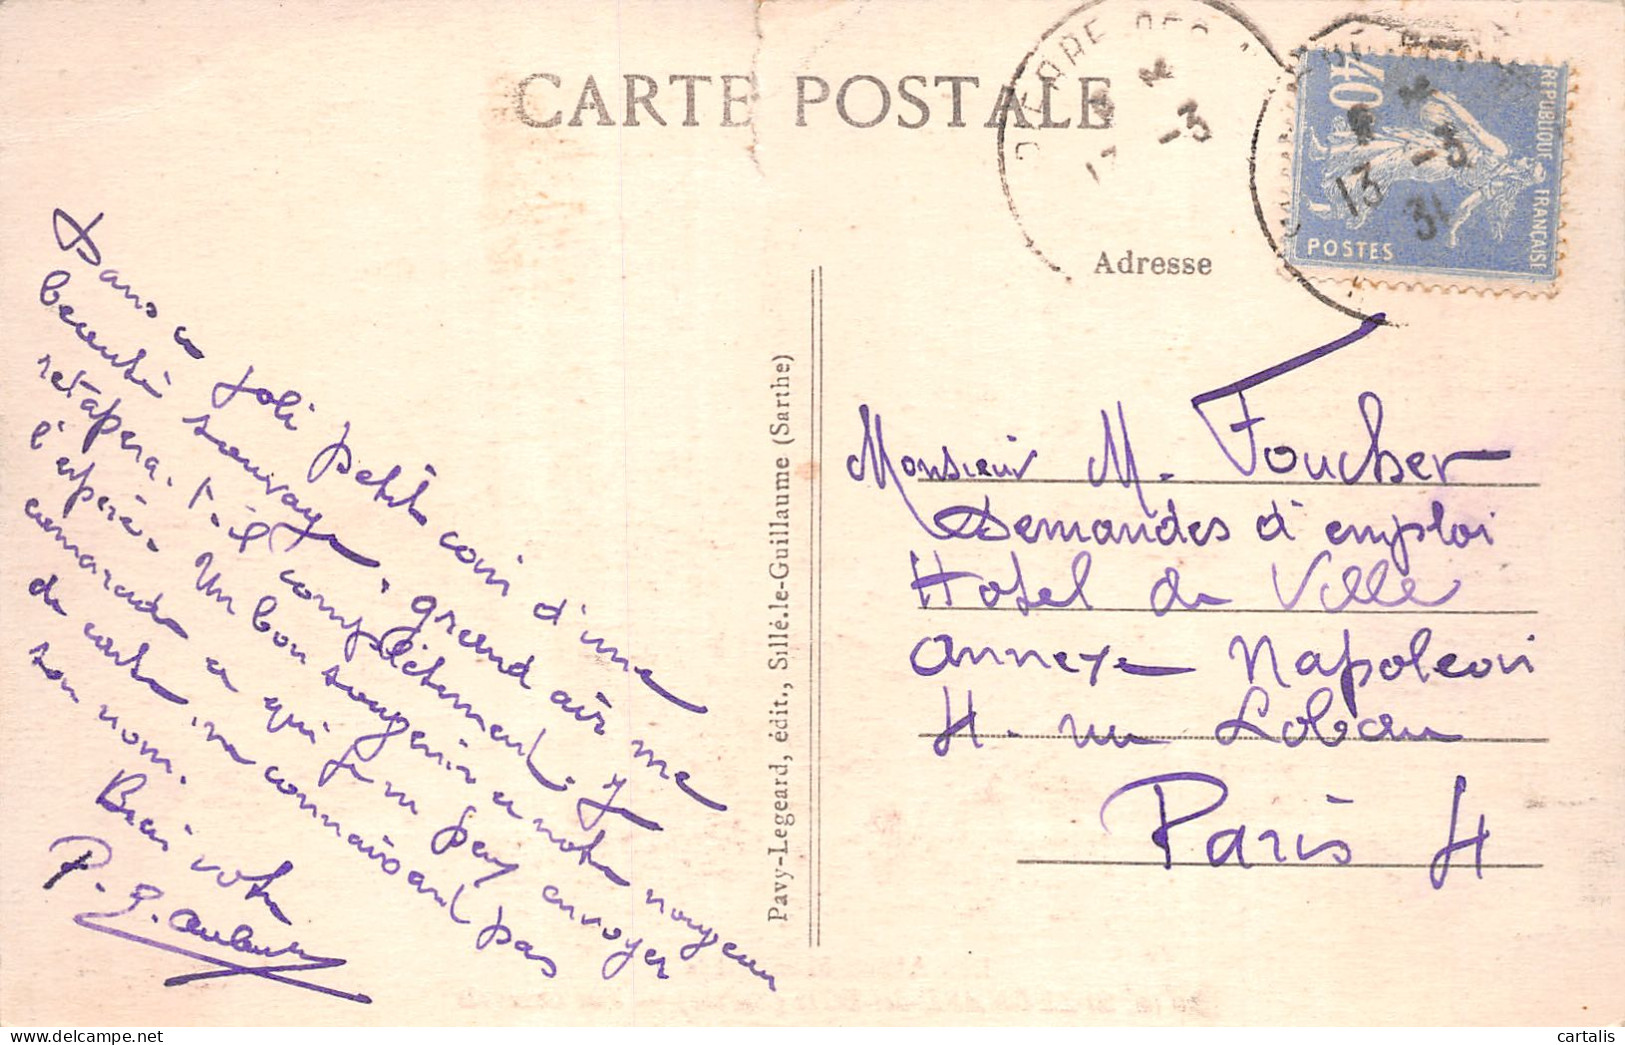 CARTE POSTALE
Adresse
RÉPUBLIQUE FRANÇAISE
40
POSTES
13
-3
31
-3
Dans ce joli petit coin d'une
beauté sauvage, grand air me
retapera t-il complètement. Je
l'espère. Un bon souvenir à notre
camarade à qui je ne peux envoyer
de carte ne connaissant pas
son nom.
Bien votre
Pavy-Legeard, édit., Sillé-le-Guillaume (Sarthe)
Monsieur M. Foucher
Demandes d'emploi
Hotel de Ville
Annexe Napoleon
4. rue Lobau
Paris 4
cartalis